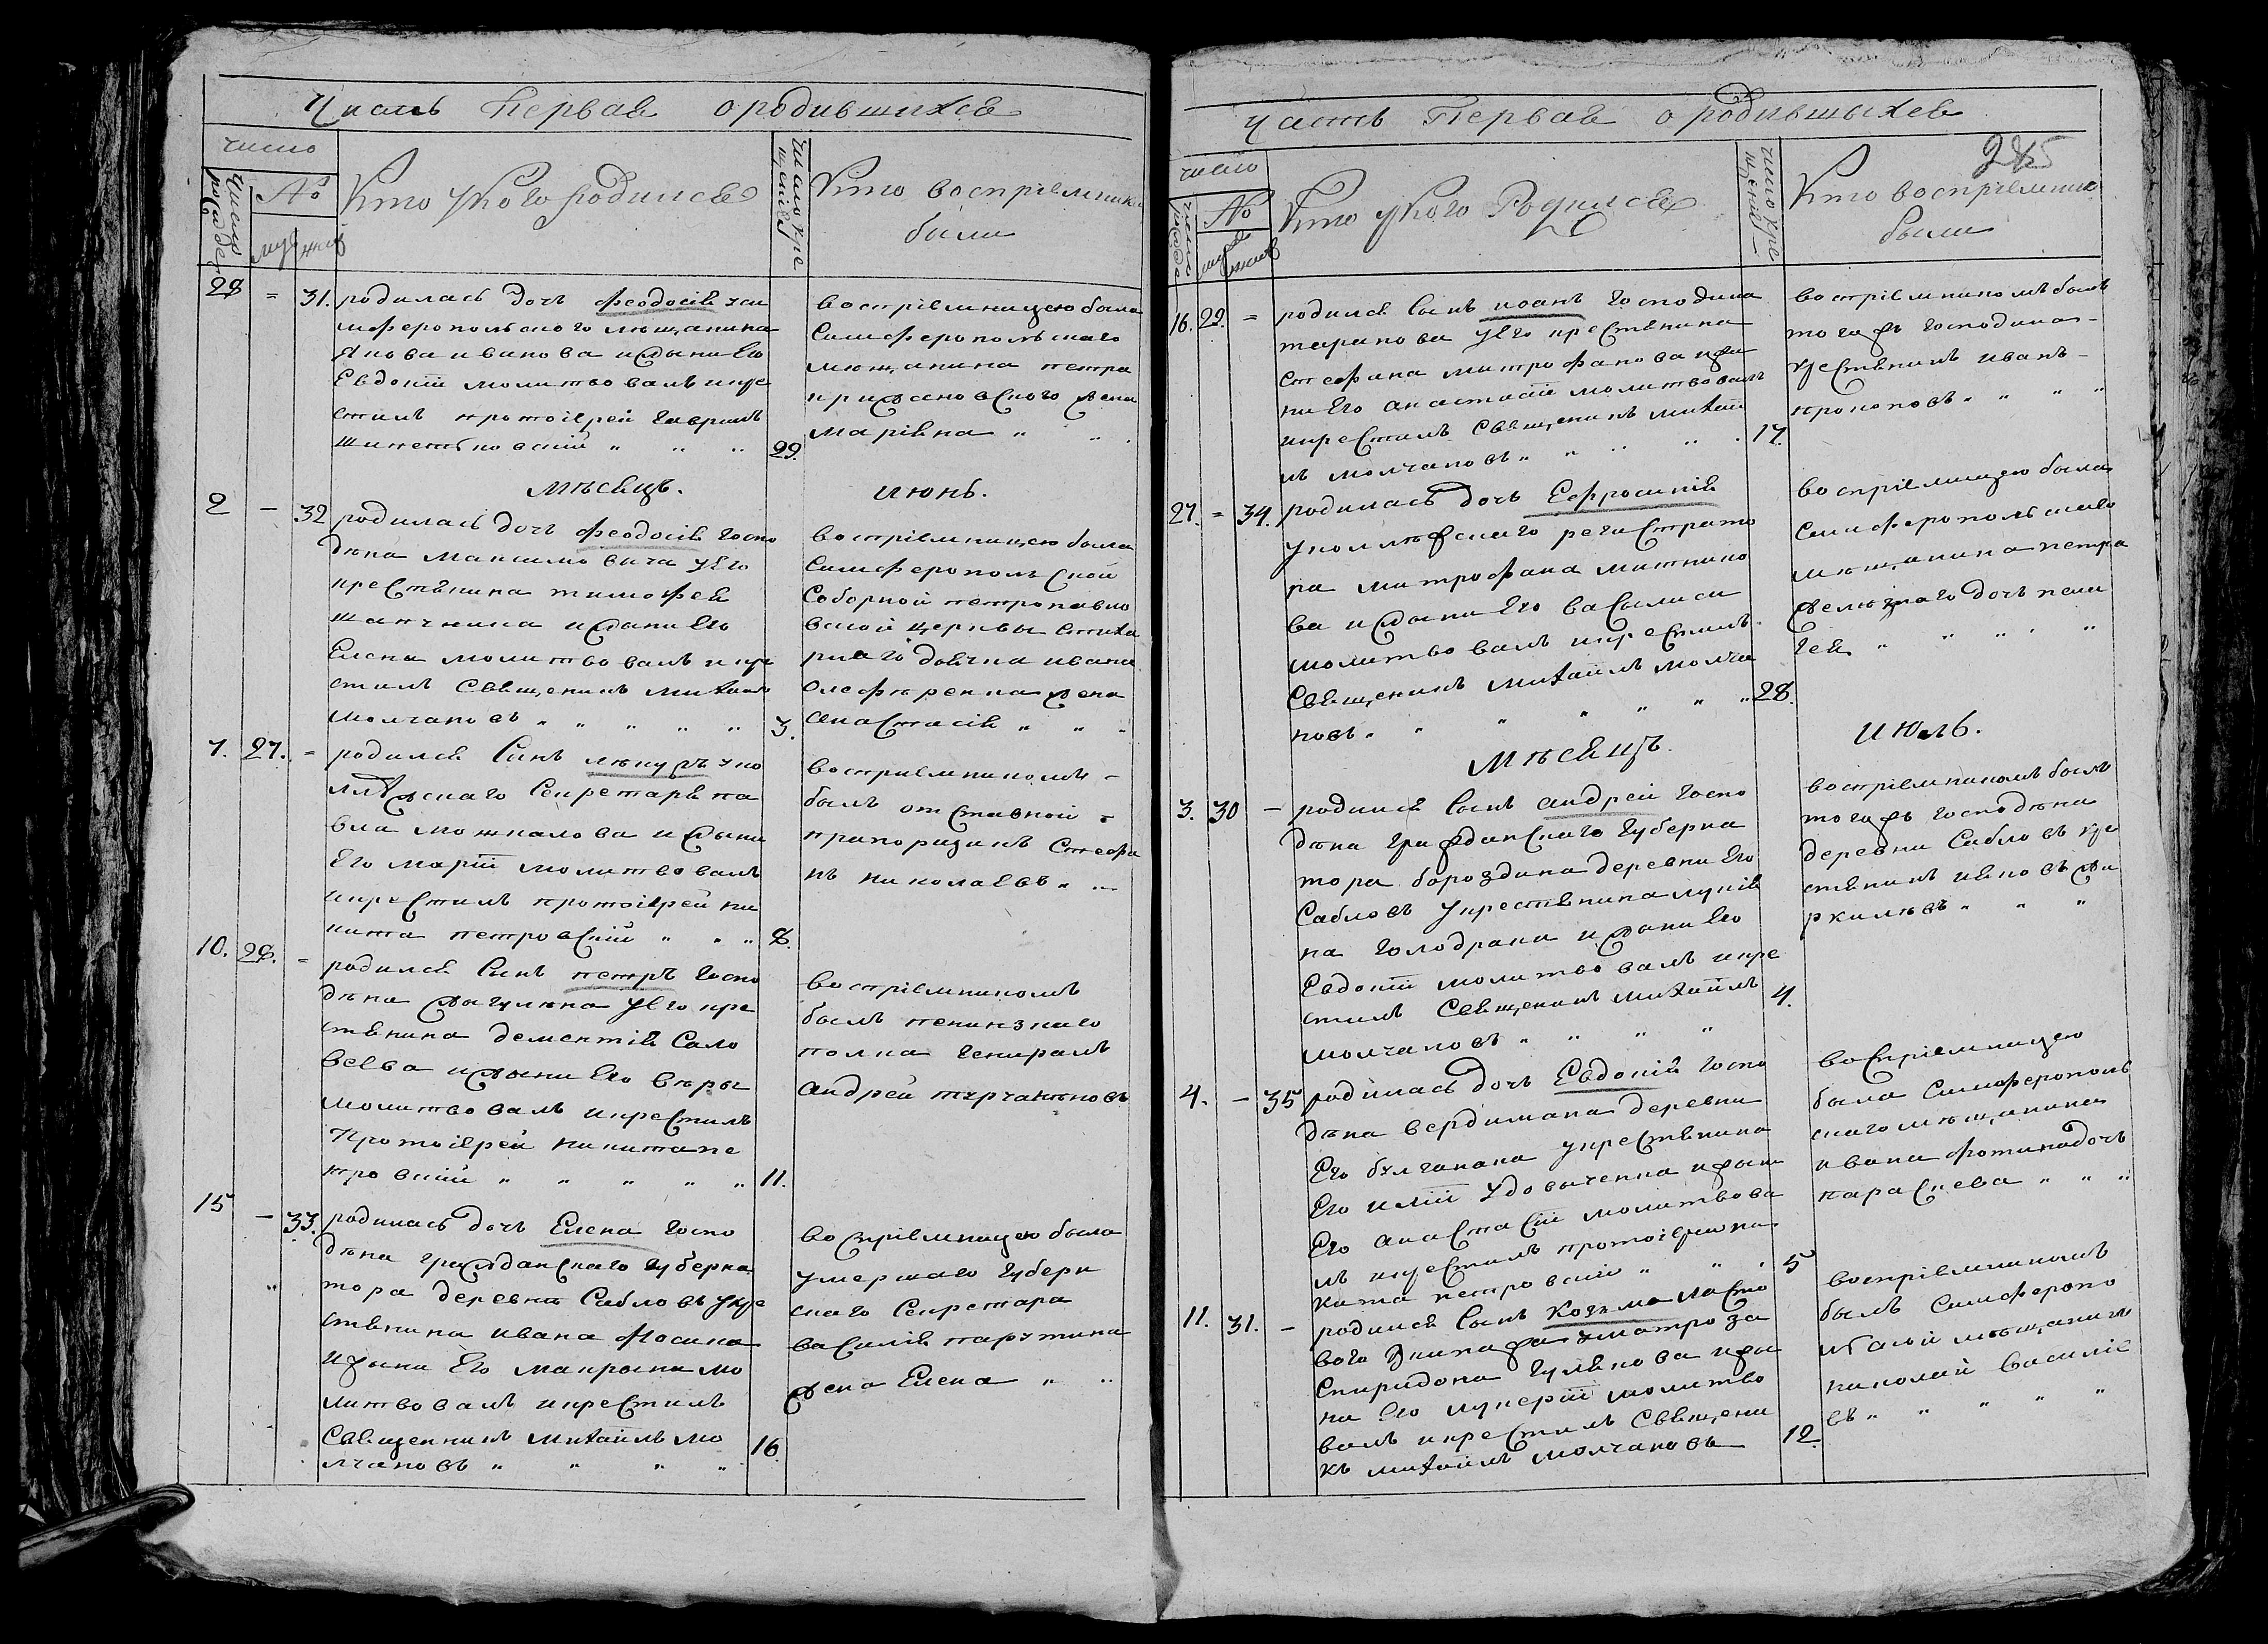 Часть Первая о родившихся
число
число рожде
№
муж
жен
Кто у кого родился
число кре
щения
Кто воспріемники
были
28 = 31. родилась дочь феодосія уси
мферопольского мѣщанина
Якова иванова и жыны Его
Евдокіи молитвовалъ и кре
стилъ протоіерей гавріилъ
шипетьковскій " " " 29.
воспріемницею была
Симферопольскаго
мѣщанина петра
жена
марièна " "
мѣсяцъ. июнь.
2 – 32 родилась дочь феодосія госпо
дина максимовича у Его
крестянина тимофея
и жыны Его
Елена молитвовалъ и кре
стилъ Священикъ михаилъ
молчановъ " " " " " 3.
воспріемницею была
Симферопольской
Соборной петропавло
вской церквы
дъячка ивана
жена
анастасія " " "
7. 27. = родился Сынъ у ко
ллежскаго Секретаря па
вла можналова и жыны
Его маріи молитвовалъ
и крестилъ протоіерей ни
кита петровскій " " " 8.
воспріемникомъ –
былъ отставной –
прапорщикъ Стефа
нъ николаевъ " "
10. 28. = родился Сынъ петръ госпо
дина у Его кре
стянина дементія Сало
веева и жыны Его вѣры
молитвовалъ и крестилъ
Протоіерей никита пе
тровскій " " " " " 11.
воспріемникомъ
былъ
полка генералъ
андрей
15 – 33. родилась дочь Елена госпо
дина гражданскаго губерна
тора деревни Сабловъ у кре
стянина ивана фосина
и жыны Его макрыны мо
литвовалъ и крестилъ
Священникъ михаилъ мо
лчановъ " " " " 16.
воспріемницею была
умершаго губерн
скаго Секретара
василія парутина
жена Елена " "
Часть Первая о родившыхся
285
число
число рожде
№
муж
жен
Кто у кого Родился
число кре
щения
Кто воспріемники
были
16. 29. = родился Сынъ иоанъ господина
таранова у Его крестянина
стефана митрофанова и жы
ны Его анастасіи молитвовалъ
и крестилъ Священикъ михаи
лъ молчановъ " " " " 17.
воспріемникомъ былъ
тогожъ господина –
крестянинъ иванъ –
прокоповъ " " "
27. = 34. родилась дочь Ефросинія
у коллежскаго регистрато
ра митрофана миткино
ва и жыны Его васылиси
молитвовалъ и крестилъ
Священикъ михаилъ молча
новъ " " " " " " 28.
воспріемницею была
Симферопольскаго
мѣщанина петра
дочь пела
гея " " " "
мѣсяцъ. июль.
3. 30 – родился Сынъ андрей госпо
дина гражданскаго губерна
тора бороздина деревни Его
Сабловъ у крестянина лукія
на голодрана и жыны Его
Евдокіи молитвовалъ и кре
стилъ Священикъ михаилъ
молчановъ " " " " 4.
воспріемникомъ былъ
тогожъ господина
деревни Сабловъ кре
стянинъ
" " "
4. – 35 родилась дочь Евдокія госпо
дина вердимана деревни
Его булганака у крестянина
Его иліи удовыченка и жыны
Его анастасіи молитвова
лъ и крестилъ протоіерей ни
кита петровскій " " " 5
воспріемницею
была Симферополь
скаго мѣщанина
ивана фотина дочь
параскева " " "
11. 31. – родился Сынъ козъма ласто
вого Экипажа у матроза
Спиридона гулякова и жы
ны Его лукеріи молитво
валъ и крестилъ Священи
къ михаилъ молчановъ 12.
воспріемникомъ
былъ Симферопо
льскій мѣщанинъ
николай василіе
въ " " " "